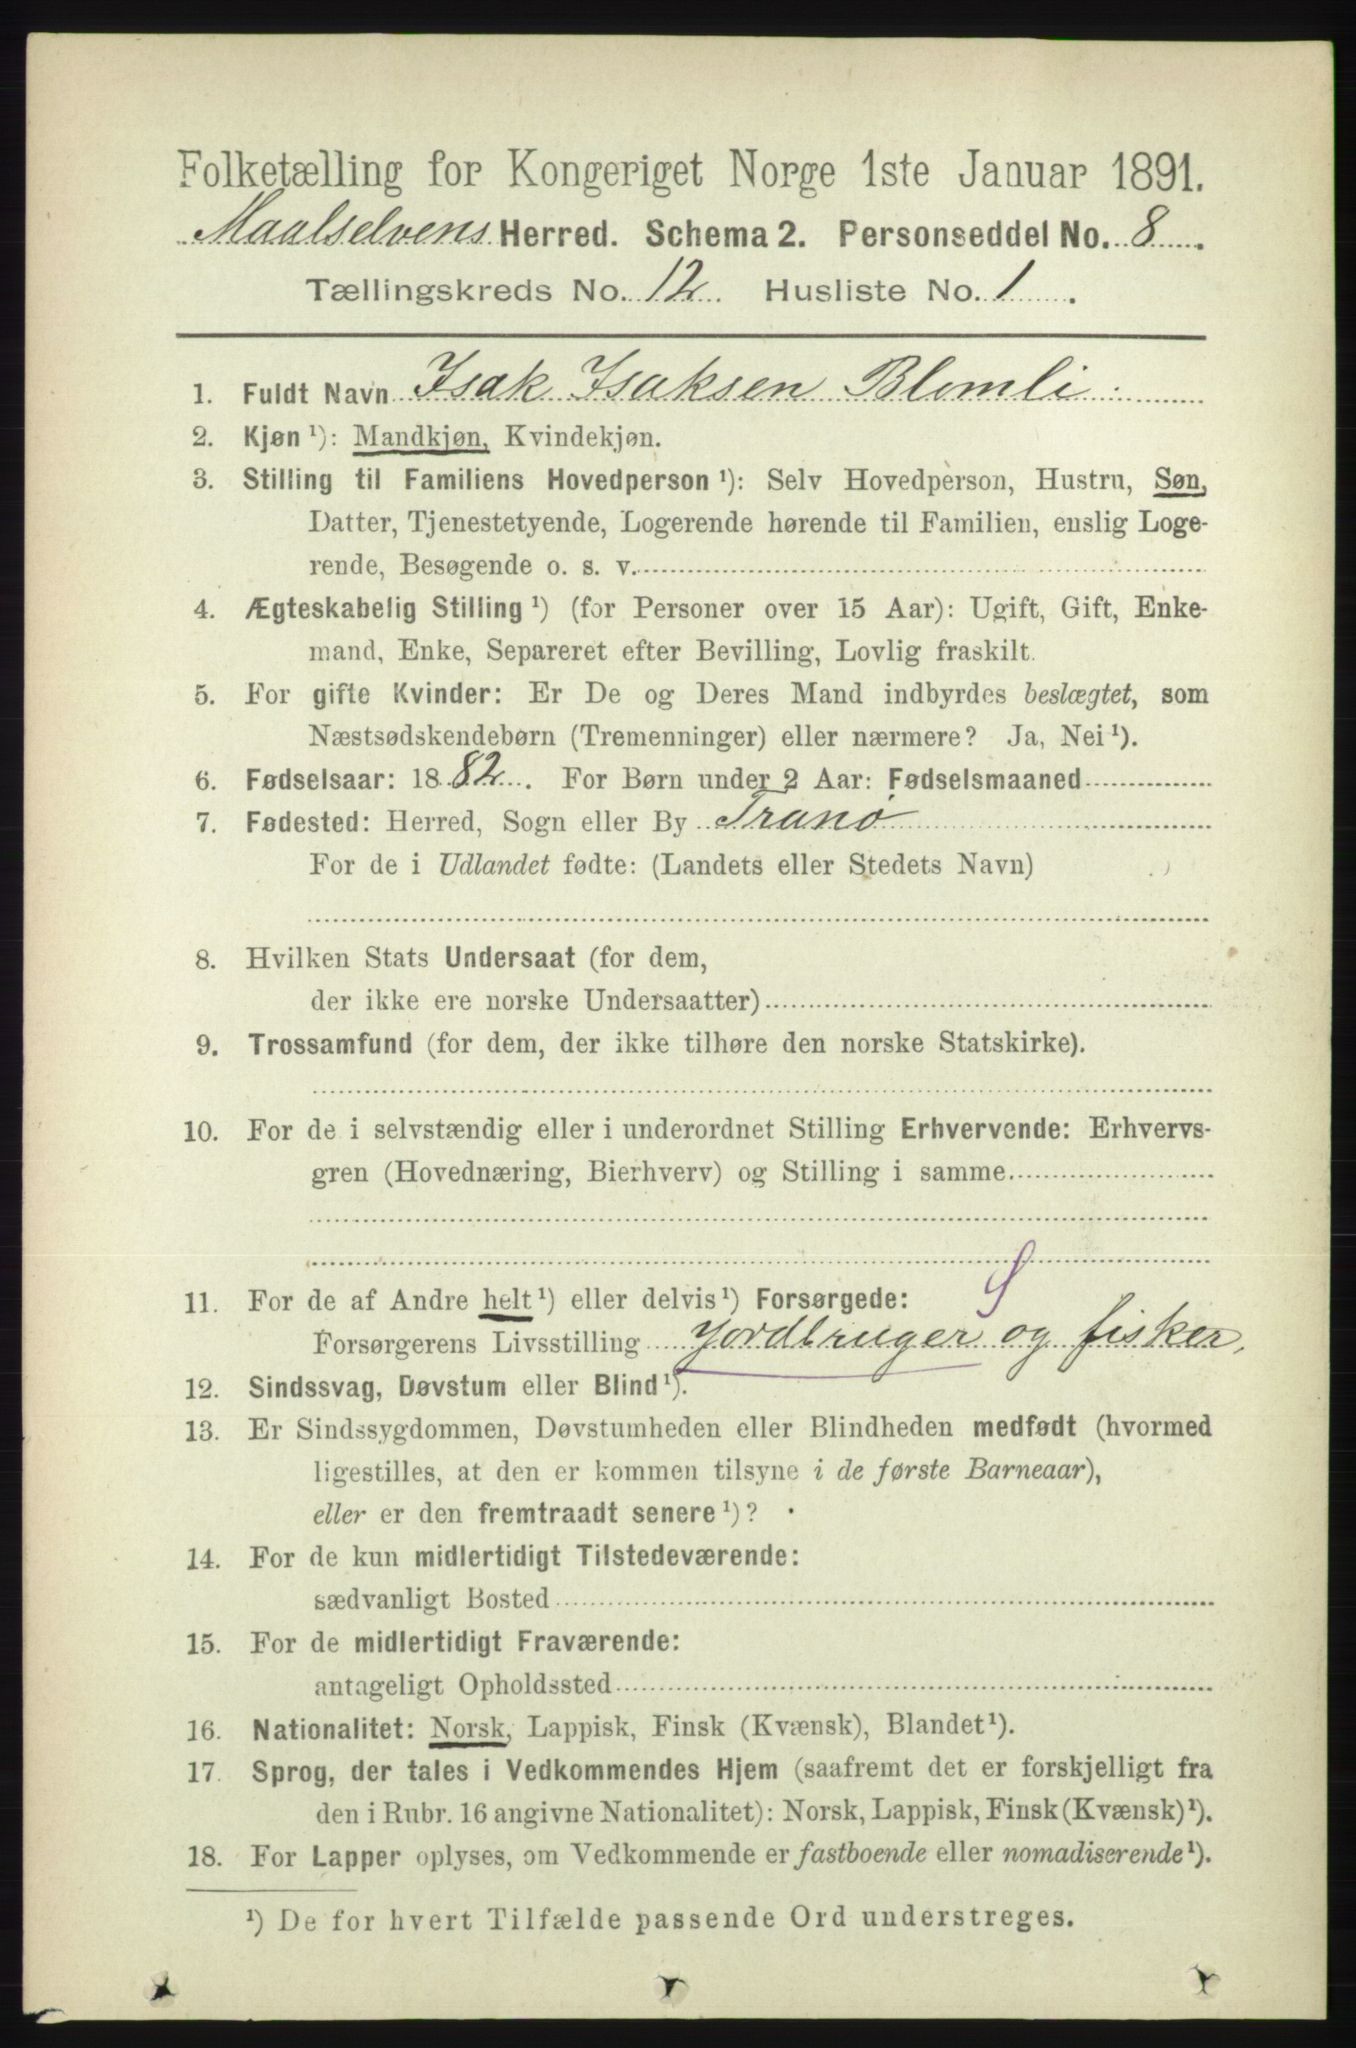 Folketælling for Kongeriget Norge 1ste Januar 1891.
Maalselvens Herred. Schema 2. Personseddel No. 8.
Tællingskreds No. 12. Husliste No. 1.
1. Fuldt Navn Isak Isaksen Blomli
2. Kjøn ¹): Mandkjøn, Kvindekjøn.
3. Stilling til Familiens Hovedperson ¹): Selv Hovedperson, Hustru, Søn,
Datter, Tjenestetyende, Logerende hørende til Familien, enslig Loge-
rende, Besøgende o. s. v.
4. Ægteskabelig Stilling ¹) (for Personer over 15 Aar): Ugift, Gift, Enke-
mand, Enke, Separeret efter Bevilling, Lovlig fraskilt.
5. For gifte Kvinder: Er De og Deres Mand indbyrdes beslægtet, som
Næstsødskendebørn (Tremenninger) eller nærmere? Ja, Nei ¹).
6. Fødselsaar: 1882. For Børn under 2 Aar: Fødselsmaaned
7. Fødested: Herred, Sogn eller By Tranø
For de i Udlandet fødte: (Landets eller Stedets Navn)
8. Hvilken Stats Undersaat (for dem,
der ikke ere norske Undersaatter)
9. Trossamfund (for dem, der ikke tilhøre den norske Statskirke).
10. For de i selvstændig eller i underordnet Stilling Erhvervende: Erhvervs-
gren (Hovednæring, Bierhverv) og Stilling i samme
S
11. For de af Andre helt ¹) eller delvis ¹) Forsørgede:
Forsørgerens Livsstilling Jordbruger og fisker,
12. Sindssvag, Døvstum eller Blind ¹).
13. Er Sindssygdommen, Døvstumheden eller Blindheden medfødt (hvormed
ligestilles, at den er kommen tilsyne i de første Barneaar),
eller er den fremtraadt senere ¹)?
14. For de kun midlertidigt Tilstedeværende:
sædvanligt Bosted
15. For de midlertidigt Fraværende:
antageligt Opholdssted
16. Nationalitet: Norsk, Lappisk, Finsk (Kvænsk), Blandet ¹).
17. Sprog, der tales i Vedkommendes Hjem (saafremt det er forskjelligt fra
den i Rubr. 16 angivne Nationalitet): Norsk, Lappisk, Finsk (Kvænsk) ¹).
18. For Lapper oplyses, om Vedkommende er fastboende eller nomadiserende ¹).
¹) De for hvert Tilfælde passende Ord understreges.